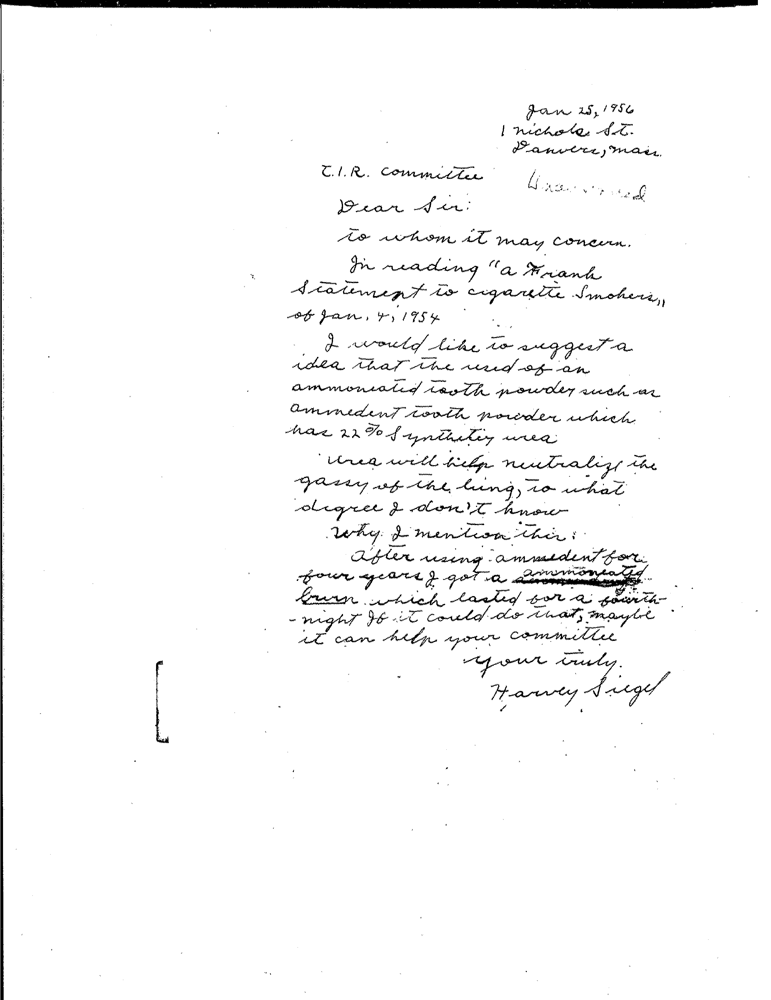 Jan 25, 1956
1 nichols St.
Danvers, mass.
T.I.R. committee
Dear Sir:
to whom it may concern.
In reading "a Frank
Statement to cigarette Smokers,,
of Jan. 4, 1954
I would like to suggest a
idea that the used of an
ammoniated tooth powder such as
ammedent tooth powder which
has 22% Synthetiy urea
urea will help neutralize the
gassy of the lung, to what
degree I don't know
Why I mention this:
After using ammedent for
four years I got a ammoniated
burn which lasted for a fourth-
-night If it could do that, maybe
it can help your committee
your truly.
Harvey Siegel